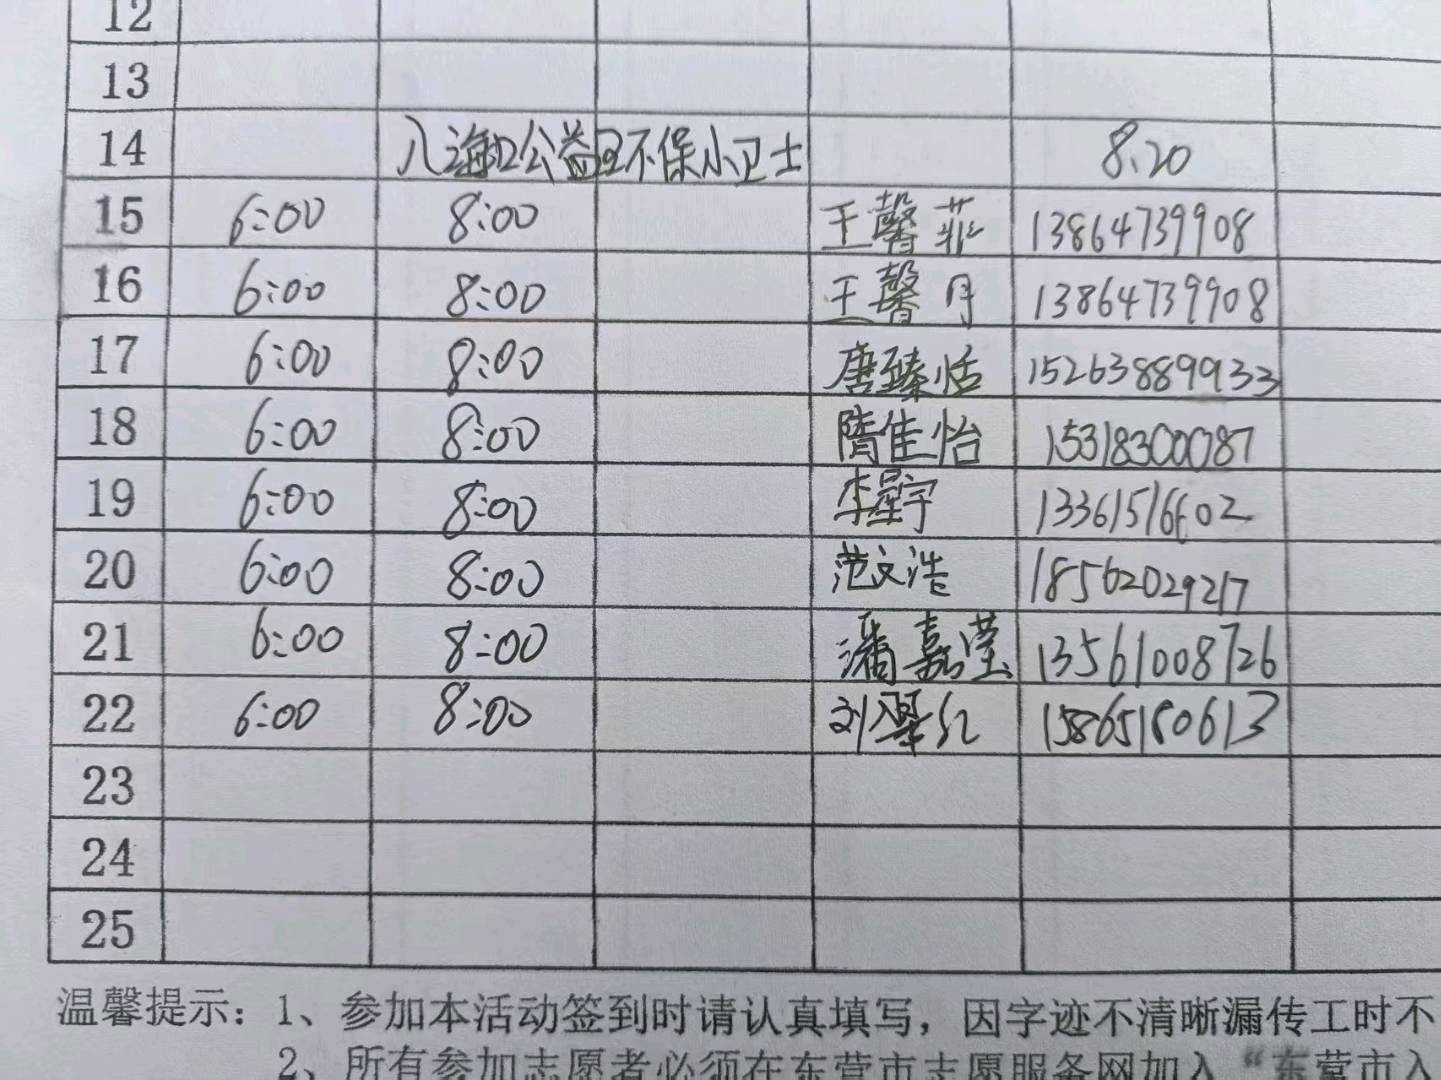 12
13
14 入海口公益环保小卫士 8.20
15 6:00 8:00 王馨菲 13864739908
16 6:00 8:00 王馨月 13864739908
17 6:00 8:00 唐臻恬 15263889933
18 6:00 8:00 隋佳怡 15318300087
19 6:00 8:00 李星宇 13361516602
20 6:00 8:00 范文浩 18562029217
21 6:00 8:00 潘嘉莹 13561008726
22 6:00 8:00 刘翠红 15865180613
23
24
25
温馨提示：1、参加本活动签到时请认真填写，因字迹不清晰漏传工时不
2、所有参加志愿者必须在东营市志愿服务网加入“东营市入